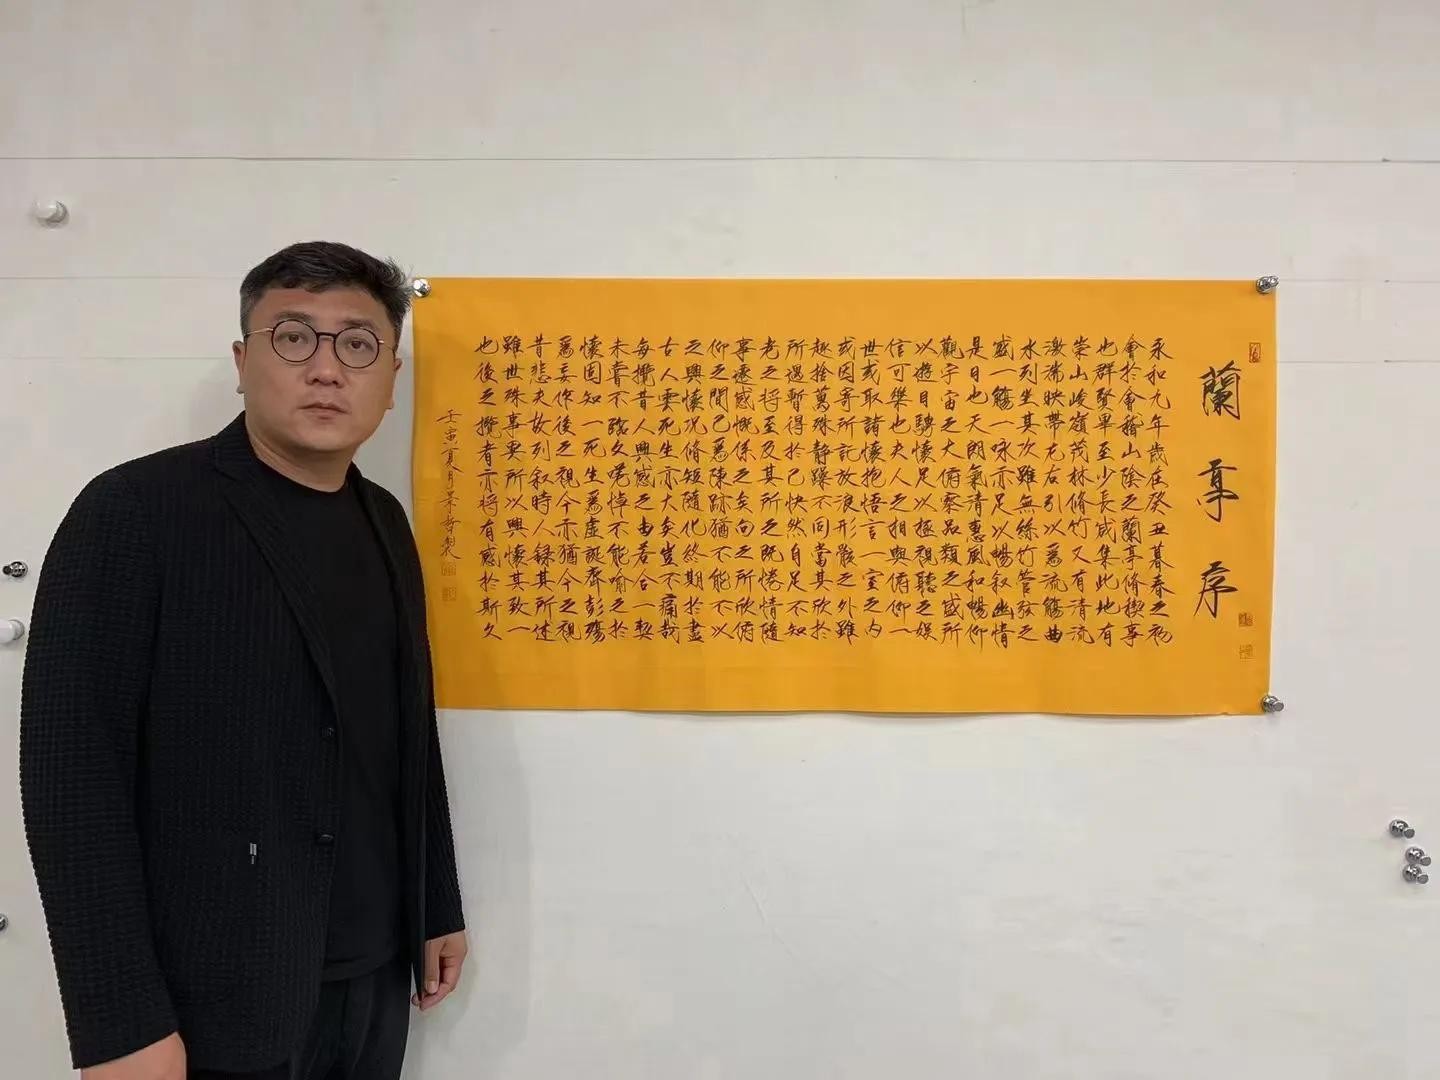 蘭亭序
永和九年歲在癸丑暮春之初
會於會稽山陰之蘭亭修禊事
也群賢畢至少長咸集此地有
崇山峻嶺茂林修竹又有清流
激湍映帶左右引以爲流觴曲
水列坐其次雖無絲竹管弦之
盛一觴一詠亦足以暢叙幽情
是日也天朗氣清惠風和暢仰
觀宇宙之大俯察品類之盛所
以遊目騁懷足以極視聽之娛
信可樂也夫人之相與俯仰一
世或取諸懷抱悟言一室之內
或因寄所託放浪形骸之外雖
趣捨萬殊靜躁不同當其欣於
所遇暫得於己快然自足不知
老之將至及其所之既倦情隨
事遷感慨係之矣向之所欣俯
仰之間已爲陳跡猶不能不以
之興懷況修短隨化終期於盡
古人雲死生亦大矣豈不痛哉
每攬昔人興感之由若合一契
未嘗不臨文嗟悼不能喻之於
懷固知一死生爲虛誕齊彭殤
爲妄作後之視今亦猶今之視
昔悲夫故列叙時人錄其所述
雖世殊事異所以興懷其致一
也後之攬者亦將有感於斯文
壬寅夏月製